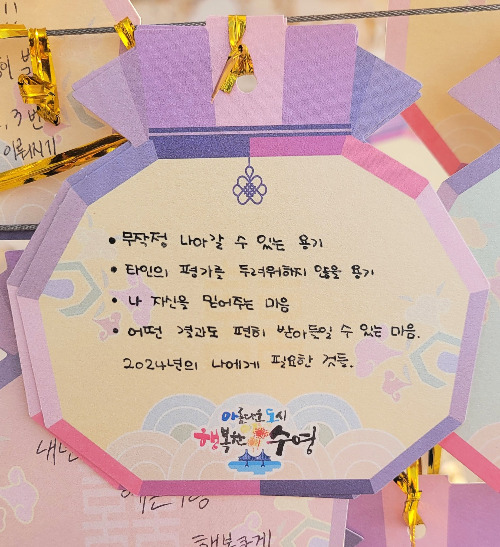 • 무작정 나아갈 수 있는 용기
• 타인의 평가를 두려워하지 않을 용기
• 나 자신을 믿어주는 마음
• 어떤 결과도 편히 받아들일 수 있는 마음.
2024년의 나에게 필요한 것들.
아름다운 도시
행복한 수영
행복하게